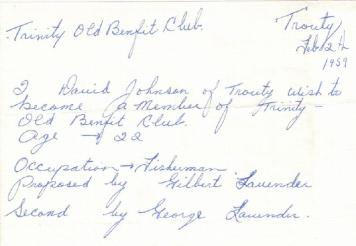 Trinity Old Benfit Club.
Trouty
Feb 12th
1959
I David Johnson of Trouty wish to
become a Member of Trinity -
Old Benfit Club.
Age → 22
Occupation → Fisherman
Proposed by Gilbert Lavender
Second by George Lavender.